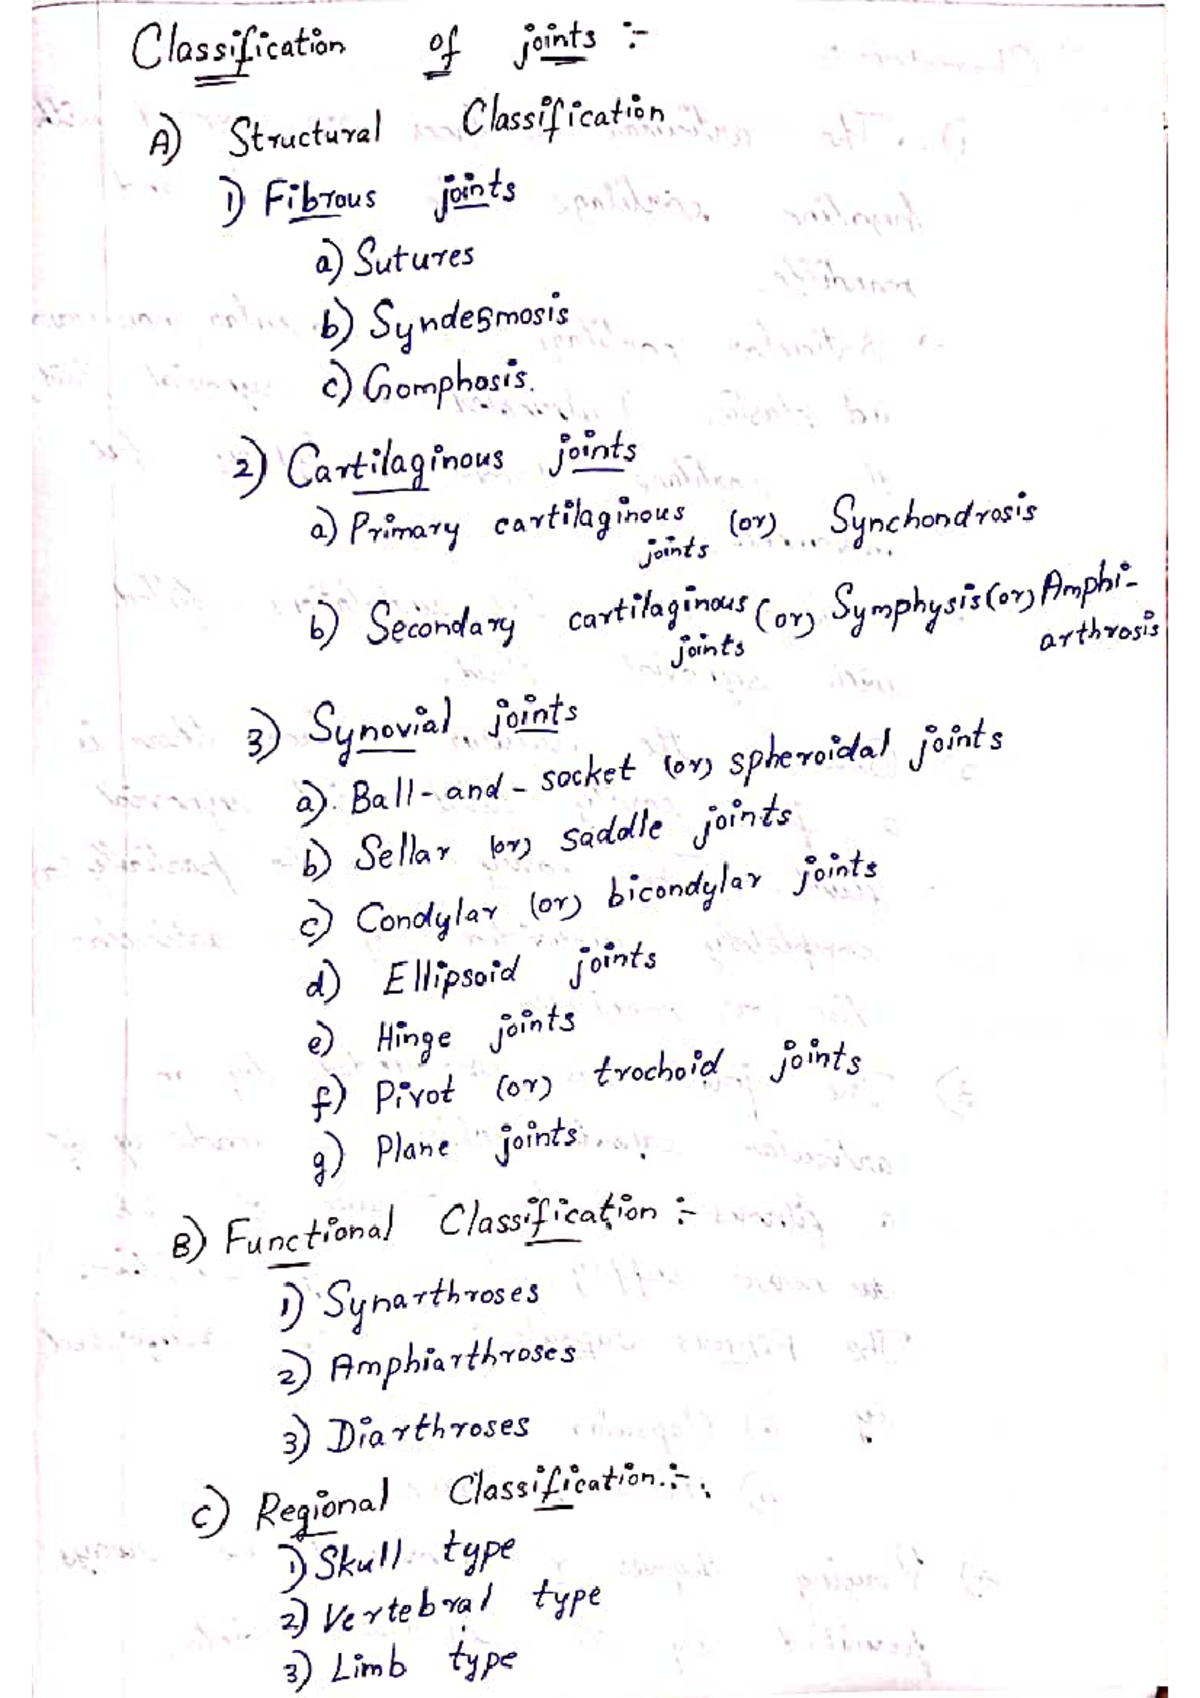 Classification of joints :-
A) Structural Classification
1) Fibrous joints
a) Sutures
b) Syndesmosis
c) Gomphosis.
2) Cartilaginous joints
a) Primary cartilaginous joints (or) Synchondrosis
b) Secondary cartilaginous joints (or) Symphysis (or) Amphi-
arthrosis
3) Synovial joints
a) Ball-and-socket (or) spheroidal joints
b) Sellar (or) saddle joints
c) Condylar (or) bicondylar joints
d) Ellipsoid joints
e) Hinge joints
f) Pivot (or) trochoid joints
g) Plane joints
B) Functional Classification :-
1) Synarthroses
2) Amphiarthroses
3) Diarthroses
C) Regional Classification :-
1) Skull type
2) Vertebral type
3) Limb type